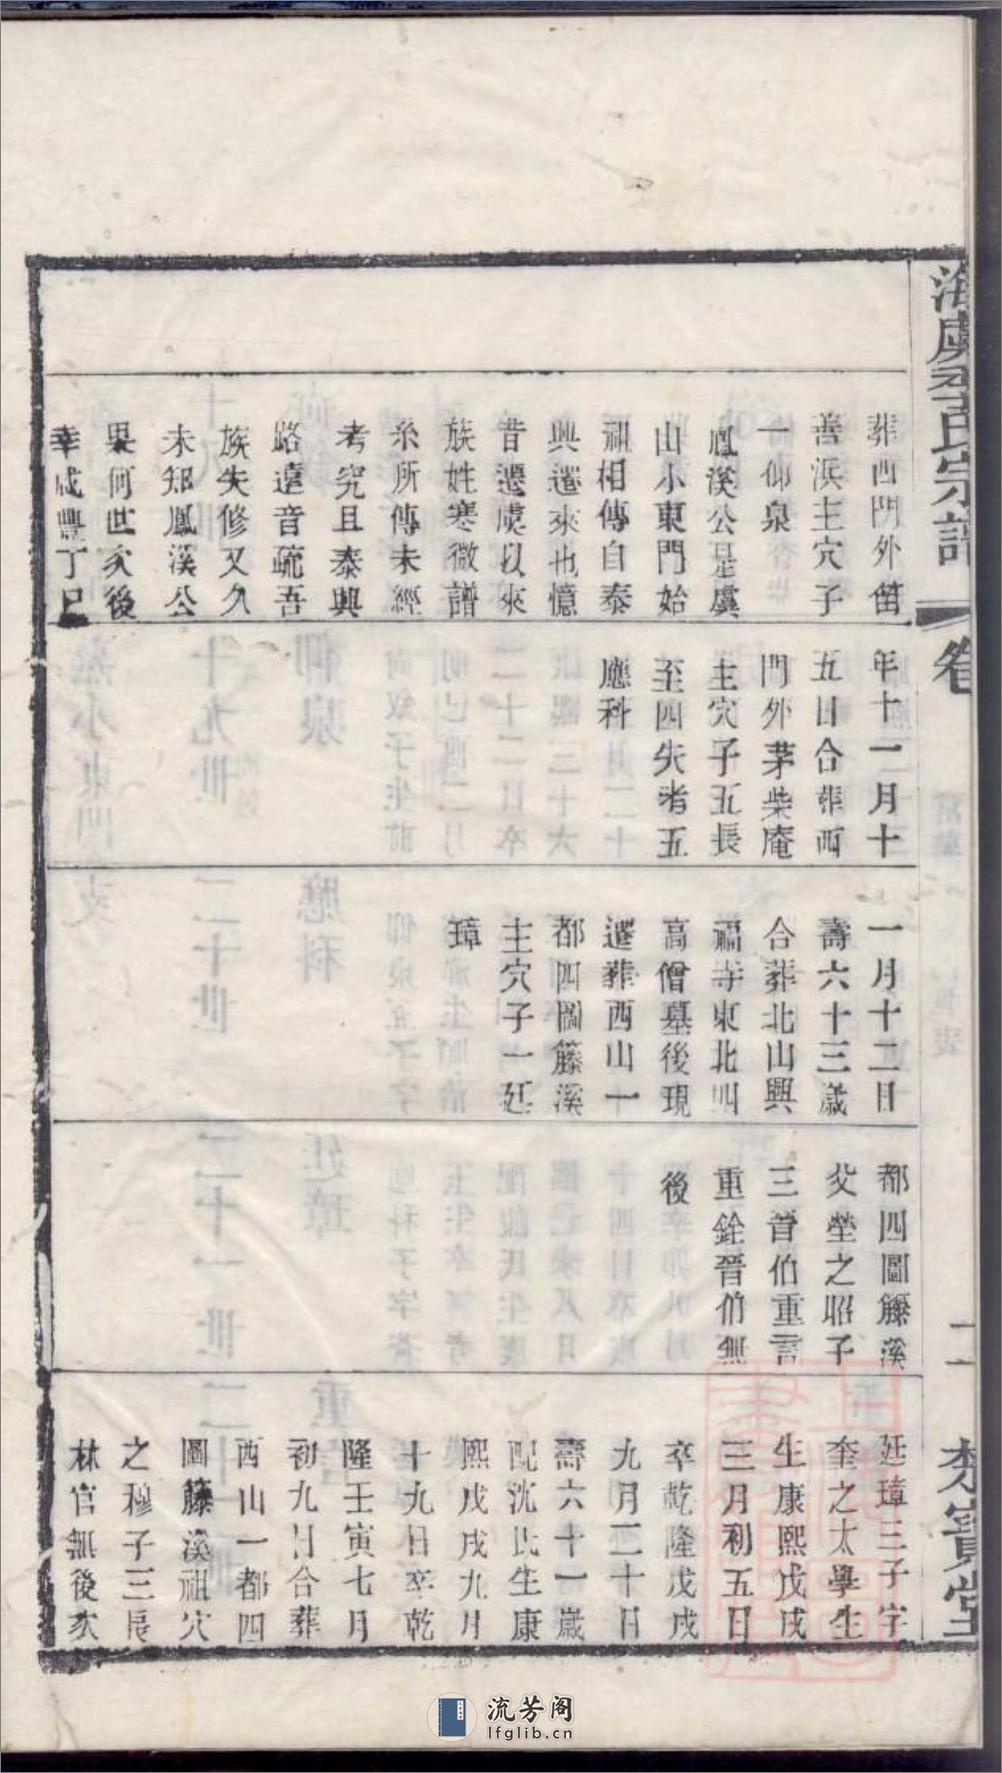 葬西門外笛
善浜主穴子
一仰泉
鳳溪公是虞
山小東門始
祖相傳自泰
興遷來也憶
昔遷虞以來
族姓寒微譜
系所傳未經
考究且泰興
路遠音疏吾
族失修又久
未知鳳溪公
果何世次後
幸咸豐丁巳
年十一月十
五日合葬西
門外茅柴庵
主穴子五長
至四失考五
應科
一月十二日
壽六十三歲
合葬北山興
福寺東北叫
高僧墓後現
遷葬西山一
都四圖籐溪
主穴子一廷
璋
都四圖籐溪
父塋之昭子
三晉伯重言
重銓晉伯無
後
廷璋三子字
奎之太學生
生康熙戊戌
三月初五日
卒乾隆戊戌
九月二十日
壽六十一歲
配沈氏生康
熙戊戌九月
十九日卒乾
隆壬寅七月
初九日合葬
西山一都四
圖籐溪祖穴
之穆子三長
林官無後次
卷
十一
流芳阁
lfglib.cn